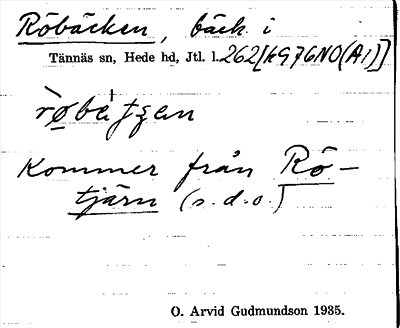 Röbäcken, bäck i
Tännäs sn, Hede hd, Jtl. l. 262 [kG76NO(A1)]
Kommer från Rö-
tjärn (s.d.o.)
O. Arvid Gudmundson 1935.